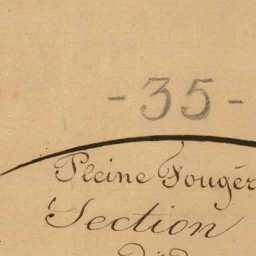 - 35 -
Pleine Fougèr
Section